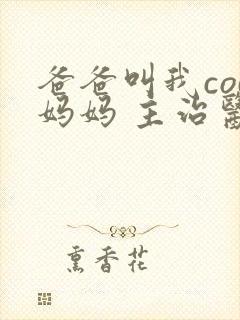 爸爸叫我co
妈妈 主治醫
熏香花